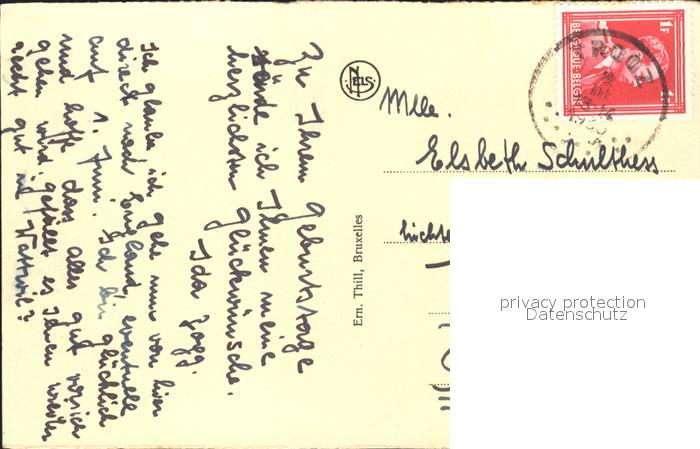 Zu Ihrem Geburtstage
sende ich Ihnen meine
herzlichsten Glückwünsche.
Ida Zogg.
Ich glaube ich gehe nun von hier
direkt nach England eventuell
auf 1. Juni. Ich bin glücklich
und hoffe dass alles gut
gehen wird. gefällt es Ihnen weiter
recht gut in Wattwil?
Ern. Thill, Bruxelles
NELS
1F
BELGIQUE-BELGIE
Mlle.
Elsbeth Schulthess
privacy protection
Datenschutz